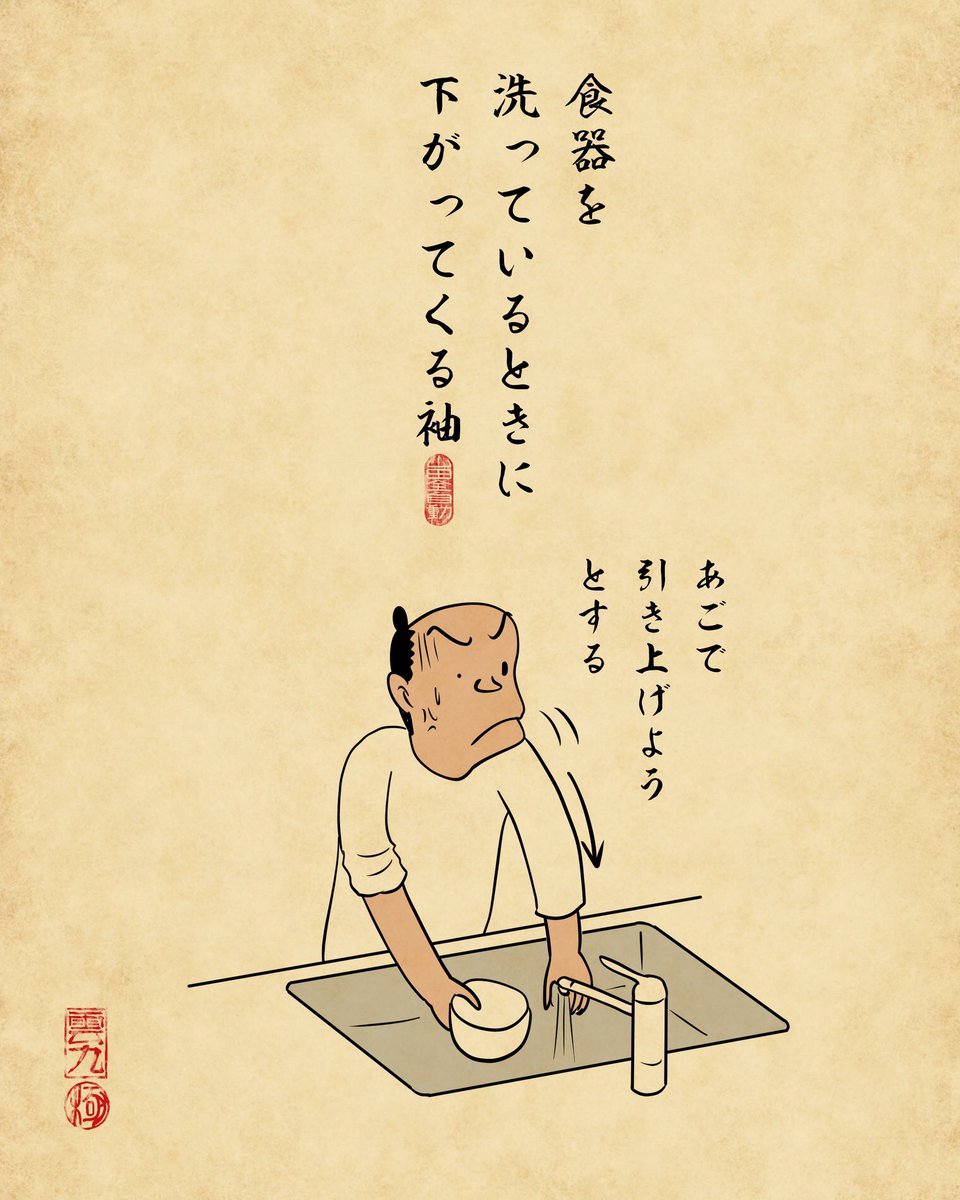 食器を
洗っているときに
下がってくる袖
あごで
引き上げよう
とする